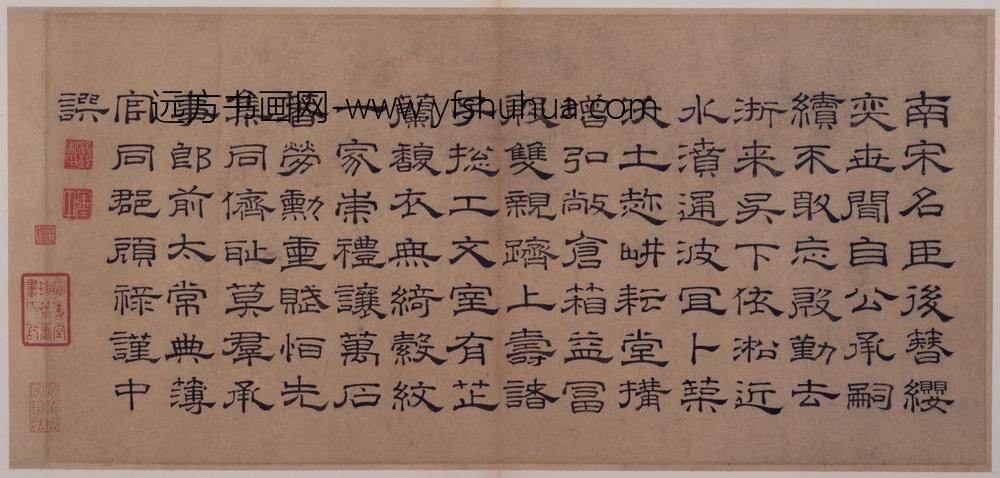 南宋名臣後簪纓
奕世聞自公承嗣
續不敢忘殷勤去
浙来吴下依淞近
水濆通波冝卜築
土趂畊耘堂搆
弘敞倉箱益富
殷雙親躋上壽諸
子総工文室有芷
蘭馥衣無綺縠紋
一家崇禮讓萬石
勞勳重賦恒先
同儕耻莫羣承
事郎前太常典薄
官同郡顧祿謹中
譔
远方书画网-www.yfshuhua.com